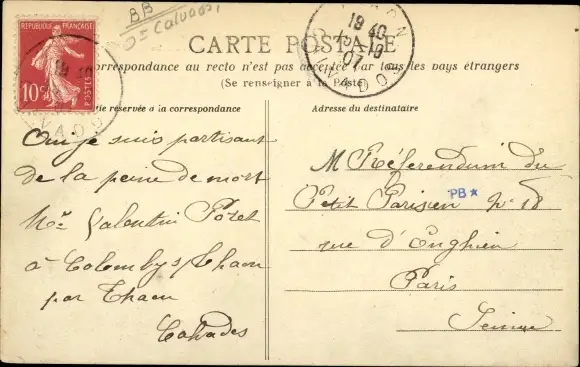 BB
Dr Calvados
REPUBLIQUE FRANÇAISE
10c
POSTES
18 40
07
CALVADOS
CARTE POSTALE
correspondance au recto n'est pas acceptée par tous les pays étrangers
(Se renseigner à la Poste)
Partie réservée à la correspondance
Oui je suis partisant
de la peine de mort
Mr Valentin Potet
à Colomby s/ Thaon
par Thaon
Calvados
Adresse du destinataire
M Référendum du
Petit Parisien No 18
PB★
rue d'Enghien
Paris
Seine